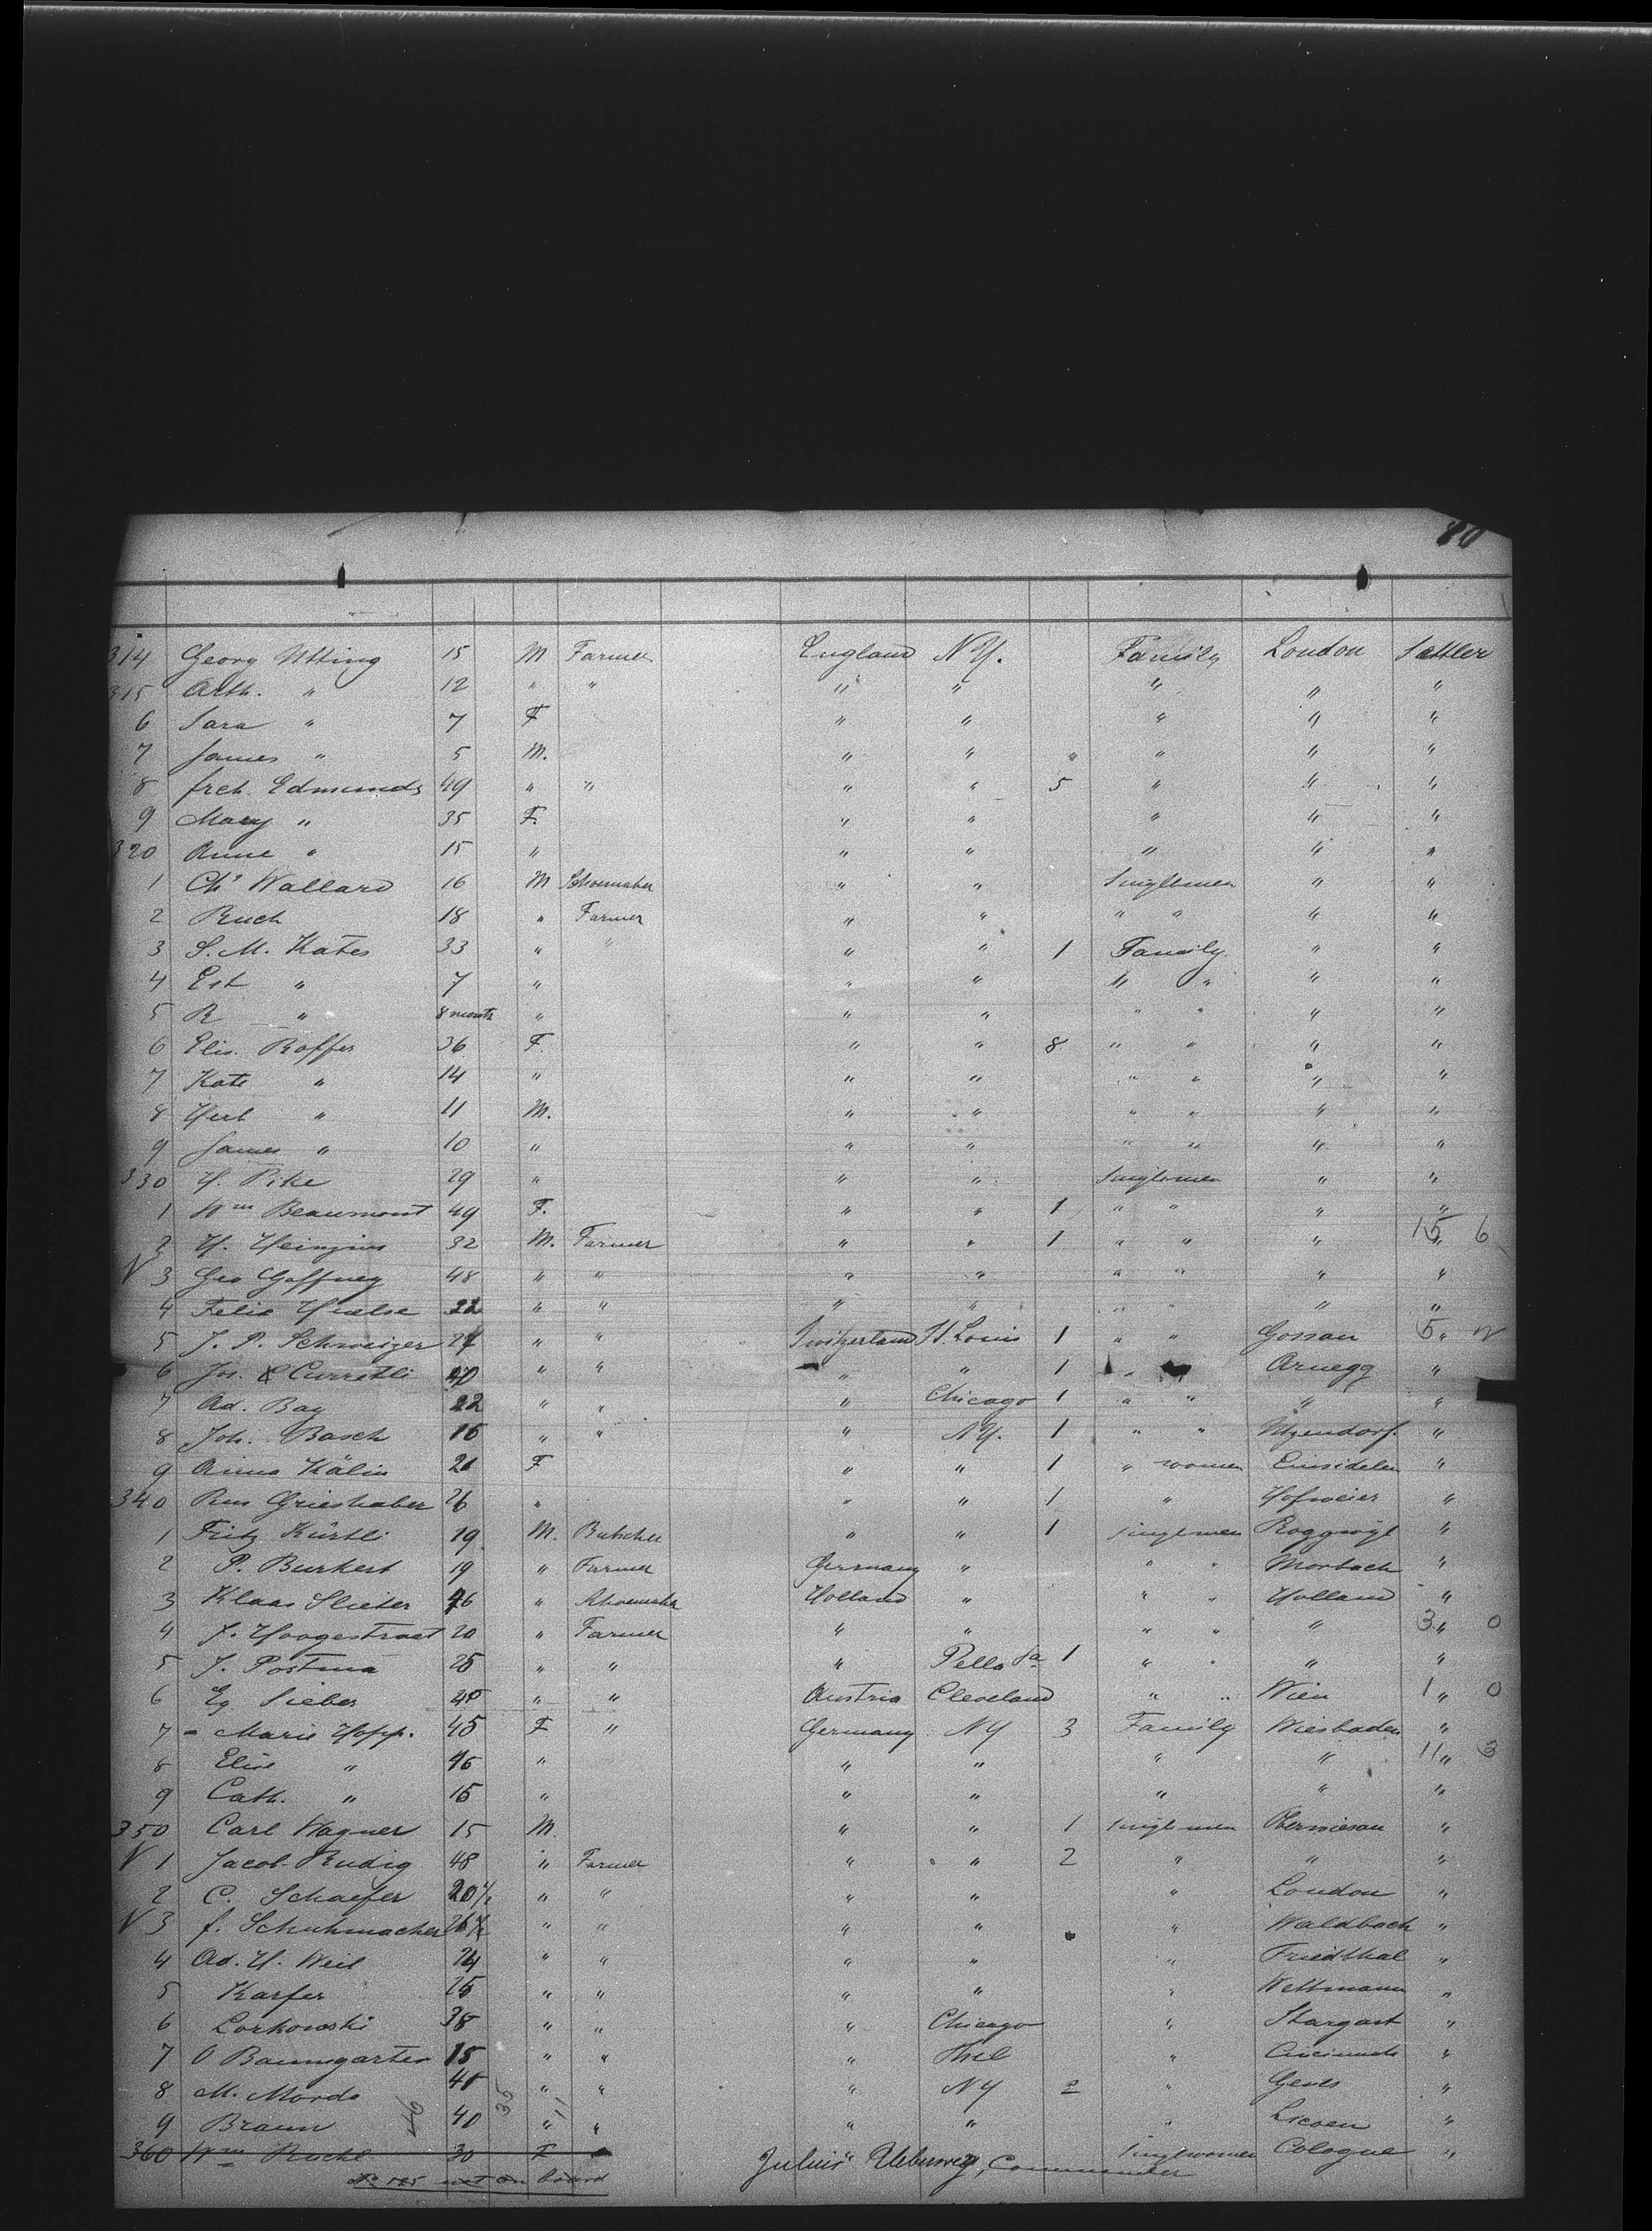 80
314 Georg Utting 15 M Farmer England N.Y. Family London Settler
315 Arth. " 12 " " " " " " "
6 Sara " 7 F " " " " "
7 James " 5 M. " " " " "
8 frch. Edmunds 49 " " " " 5 " " "
9 Mary " 35 F. " " " " "
320 Anne " 15 " " " " " "
1 Chs Wallard 16 M Schoemaker " " Singlemen " "
2 Ruch 18 " Farmer " " " " " "
3 S. M. Kates 33 " " " " 1 Family " "
4 Est " 7 " " " " " " "
5 R " 8 month " " " " " " "
6 Elis. Roffer 36 F. " " 8 " " " "
7 Kate " 14 " " " " " " "
8 Herb " 11 M. " " " " " "
9 James " 10 " " " " " " "
330 H. Pike 29 " " " Singlemen " "
1 Wm Beaumont 49 F. " " 1 " " " "
15 6
2 H. Heinzius 32 M. Farmer " " 1 " " " "
V 3 Geo Gaffney 48 " " " " " " " "
4 Felix Huelse 22 " " " " " " " "
5 J. P. Schweizer 27 " " Switzerland St. Louis 1 " " Gossau 5 "
6 Jos. Currethli 20 " " " " 1 " " Arnegg "
7 Ad. Bay 22 " " " Chicago 1 " " " "
8 Joh. Basch 16 " " " N.Y. 1 " " Utzendorf. "
9 Anna Kälin 21 F " " 1 " women Einsidelen "
340 Ros Grieshaber 26 " " " 1 " Hofweier "
1 Fritz Kürtli 19 M. Butcher " " 1 Singlemen Roggwyl "
2 P. Burkert 19 " Farmer Germany " " " Morbach "
3 Klaas Slieter 46 " Schoemaker Holland " " " Holland "
4 J. Hoogestraet 20 " Farmer " " " " " 3 " 0
5 J. Postma 25 " " " Pella Ia 1 " " " "
6 Eg Sieber 45 " " Austria Cleveland " " Wien 1 " 0
7 - Marie Hopp. 45 F " Germany NY 3 Family Wiesbaden "
8 Elise " 16 " " " " " 11 " 3
9 Cath. " 15 " " " " " "
350 Carl Wagner 15 M " " 1 Singlemen Oberwiesau "
V 1 Jacob Rudig 48 " Farmer " " 2 " " "
2 C. Schaefer 20 " " " " " London "
V 3 f. Schuhmacher 26 " " " " " Waldbach "
4 Ad. H. Weil 24 " " " " " Friedthal "
5 Karfer 25 " " " " " Wettmann "
6 Lorkowski 38 " " " Chicago " Stargart "
7 O Baumgarten 15 " " " " Cincinnati "
8 M. Mords 40 " " " NY 2 " "
9 Braun 40 " " " " " "
46 35 11
360 Wm Ruckl 30 F " Singlwomen Cologne "
not on board
Julius Ueberweg, Commander